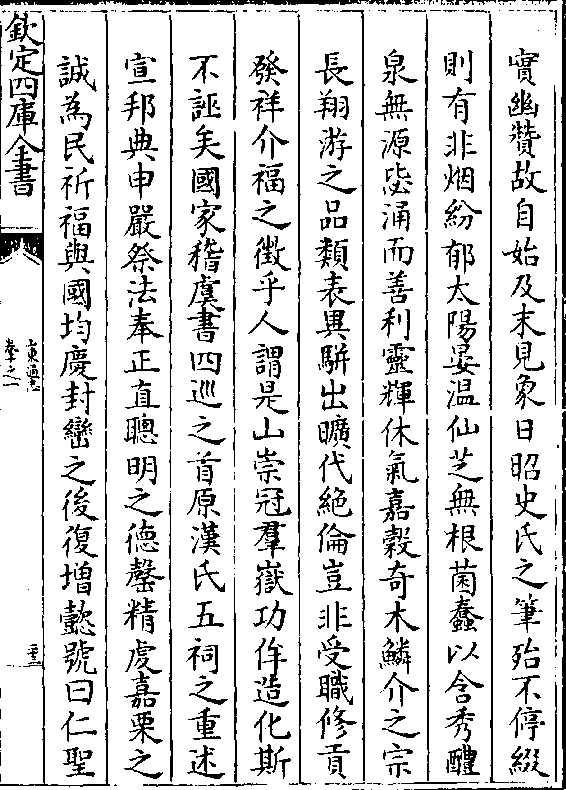 實幽贊故自始及末見象日昭史氏之筆殆不停綴
則有非烟紛郁太陽晏温仙芝無根菌蠢以含秀醴
泉無源毖涌而善利靈輝休氣嘉穀奇木鱗介之宗
長翔游之品類表異駢出曠代絶倫豈非受職修貢
發祥介福之徴乎人謂是山崇冠羣嶽功侔造化斯
不誣矣國家稽虞書四巡之首原漢氏五祠之重述
宣邦典申嚴祭法奉正直聰明之德罄精虔嘉栗之
誠為民祈福與國均慶封巒之後復増懿號曰仁聖
欽定四庫全書
卷之一